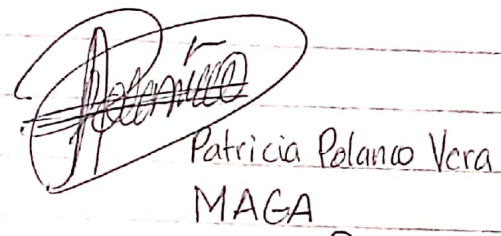 Patricia Polanco Vera
MAGA